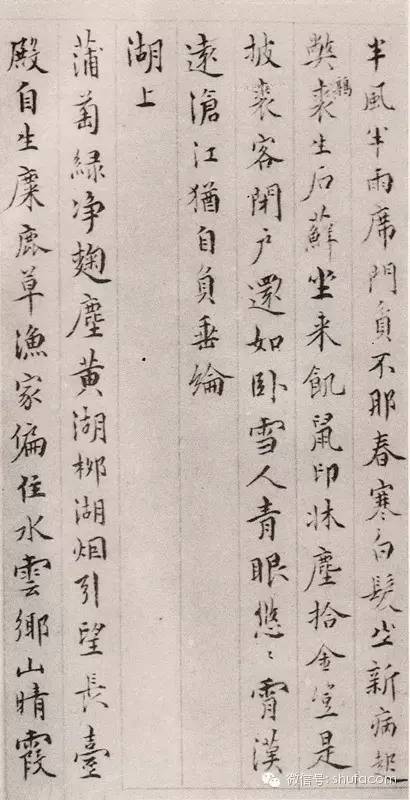 半風半雨席門貧不那春寒白髮新病
獘裘生石蘚坐来飢鼠印牀塵拾金豈是
披裘客閉户還如卧雪人青眼悠〻霄漢
遠滄江猶自負垂綸
湖上
蒲萄緑净麹塵黄湖柳湖烟引望長臺
殿自生麋鹿草漁家偏住水雲鄉山晴霞
微信号: shufacom